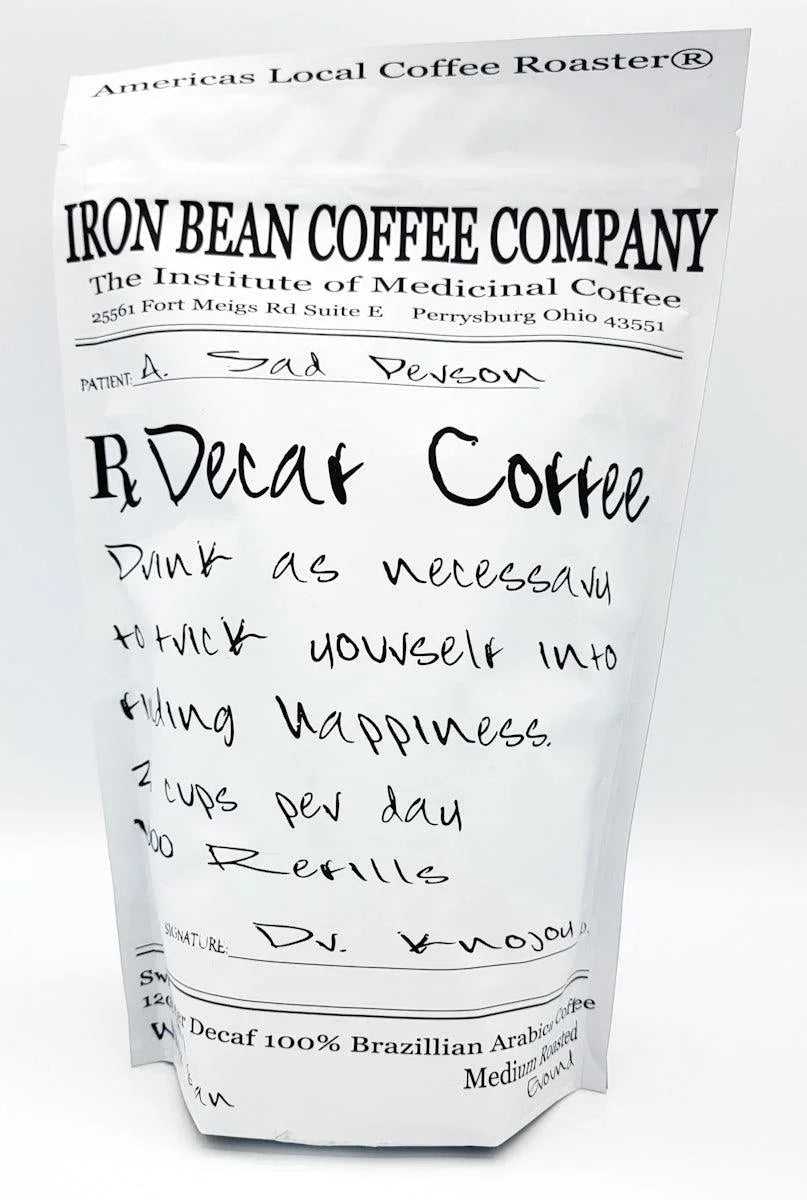 Americas Local Coffee Roaster®
IRON BEAN COFFEE COMPANY
The Institute of Medicinal Coffee
25561 Fort Meigs Rd Suite E Perrysburg Ohio 43551
PATIENT: A. Sad Person
Rx Decaf Coffee
Drink as necessary
to trick yourself into
finding happiness.
2 cups per day
Refills
SIGNATURE: Dr. Knojoy
Decaf 100% Brazillian Arabica Coffee
Medium Roasted
Ground